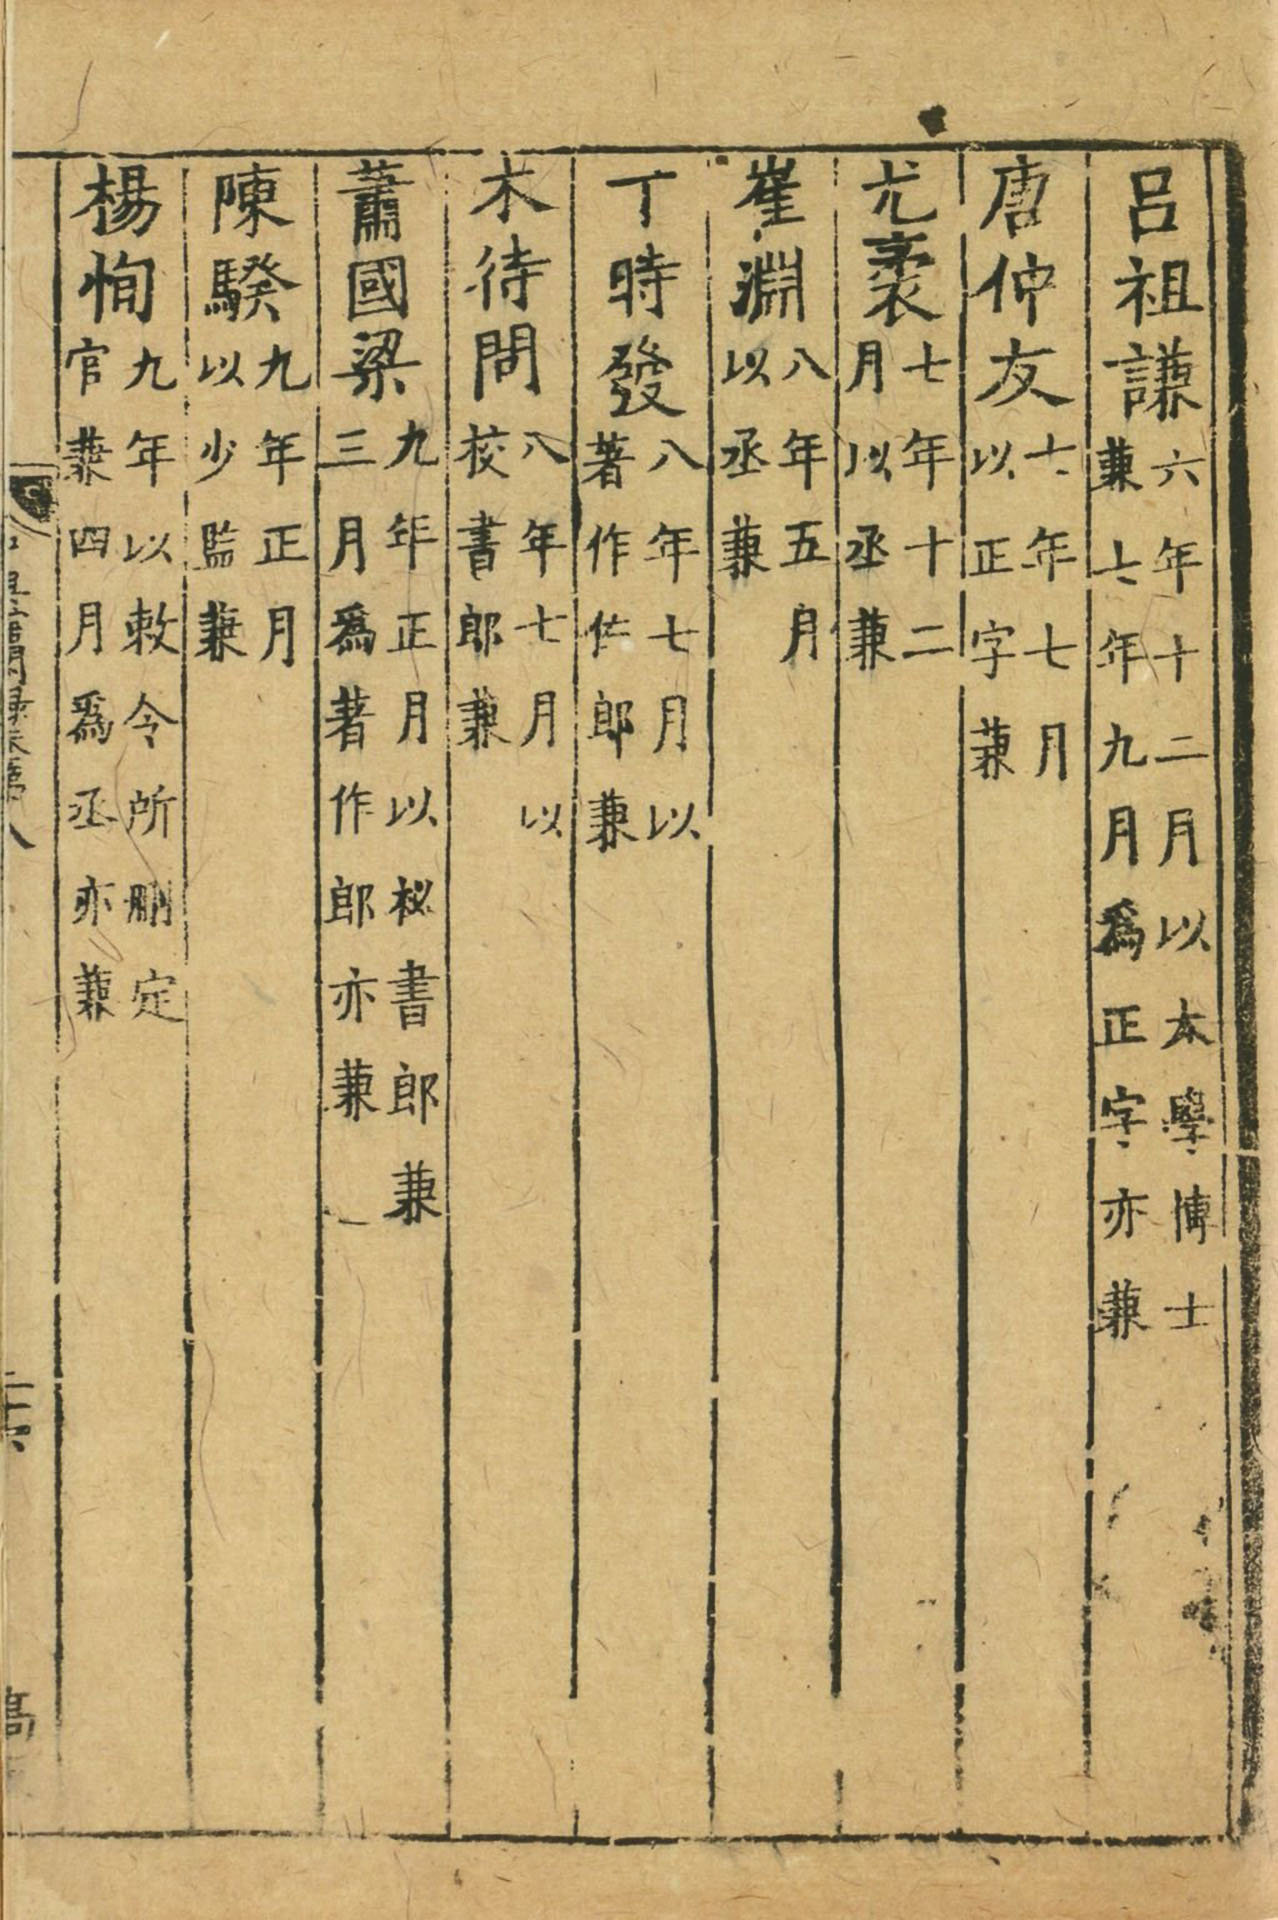 呂祖謙六年十二月以太學博士兼七年九月爲正字亦兼
唐仲友七年七月以正字兼
尤袤七年十二月以丞兼
崔淵八年五月以丞兼
丁時發八年七月以著作佐郎兼
木待問八年七月以校書郎兼
蕭國梁九年正月以祕書郎兼三月爲著作郎亦兼
陳騤九年正月以少監兼
楊恂九年以敕令所刪定官兼四月爲丞亦兼